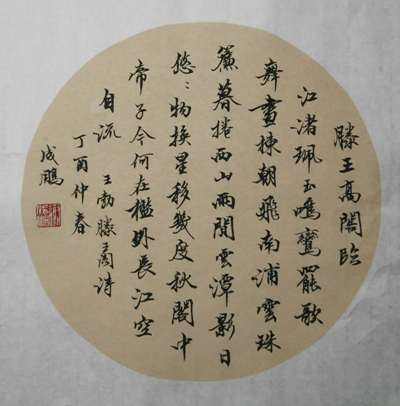 滕王高閣臨
江渚珮玉鳴鸞罷歌
舞畫棟朝飛南浦雲珠
簾暮捲西山雨閒雲潭影日
悠々物換星移幾度秋閣中
帝子今何在檻外長江空
自流 王勃滕王閣詩
丁酉仲春
成鵬